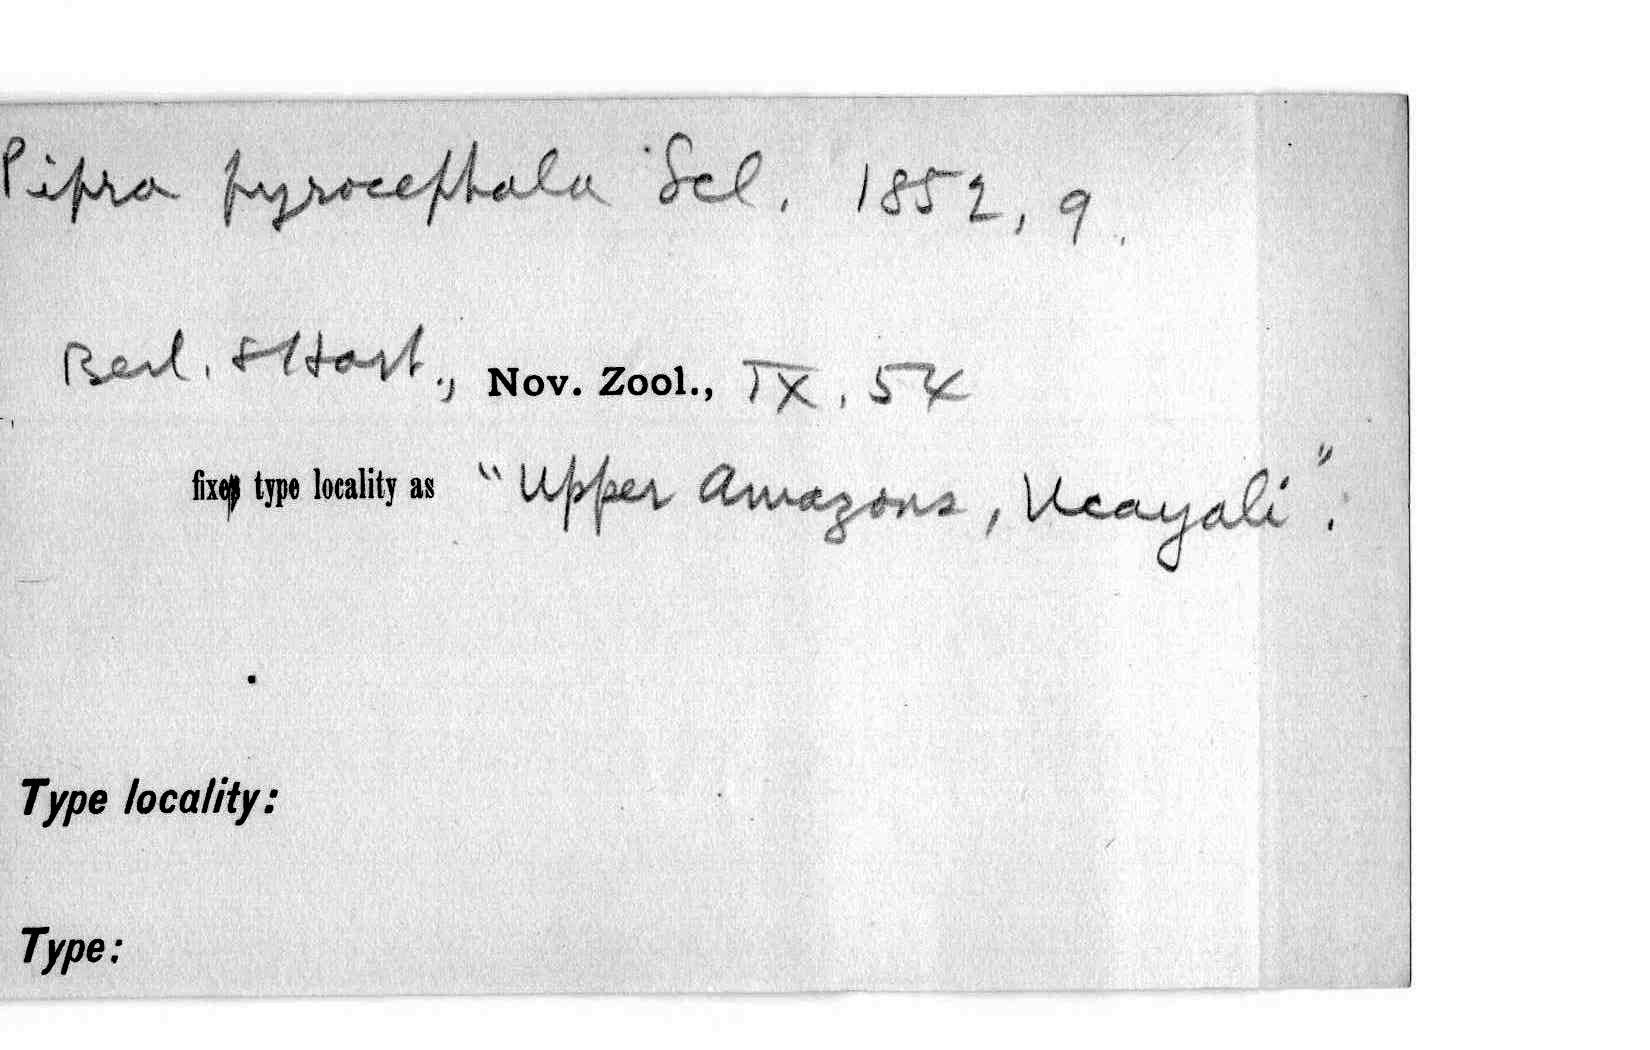 Pipra pyrocephala Scl. 1852, 9.
Berl. & Hart., Nov. Zool., IX, 54
fix type locality as "Upper Amazons, Ucayali".
Type locality:
Type: